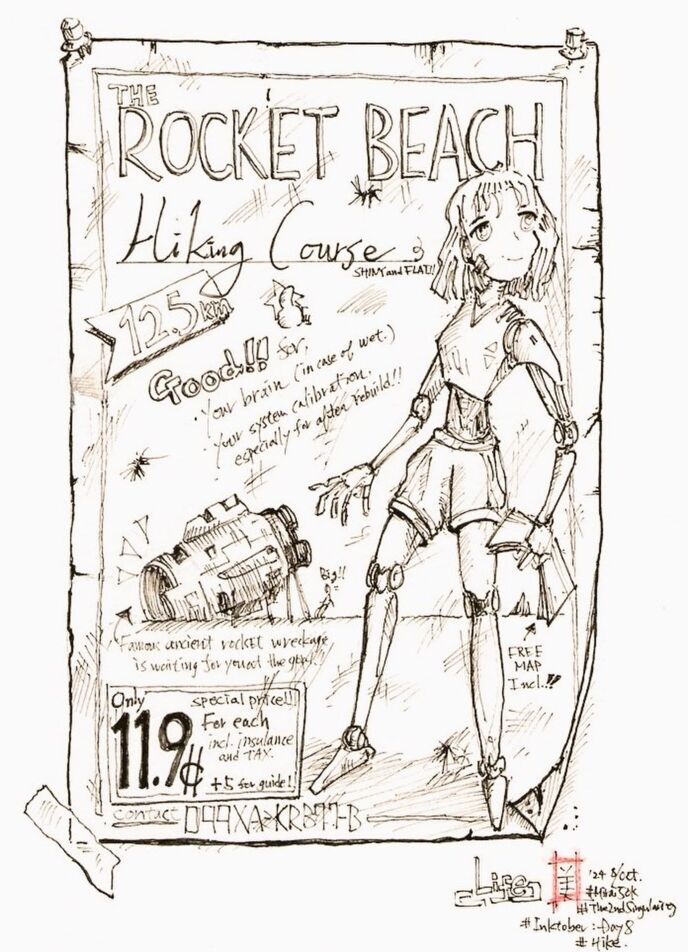 THE
ROCKET BEACH
Hiking Course
SHINY and FLAT!!
12.5 km
Good!! for,
・Your brain (in case of wet.)
・Your system calibration.
especially for after rebuild!!
Big!!
Famous ancient rocket wreckage
is waiting for you at the goal!!
FREE
MAP
Incl.!!
Only
special price!!
11.9¢
For each
incl. insulance
and TAX.
+5 for guide!!
contact
Life
'24 8/Oct.
#The2ndSingularity
#Inktober : Day 8
#Hike.